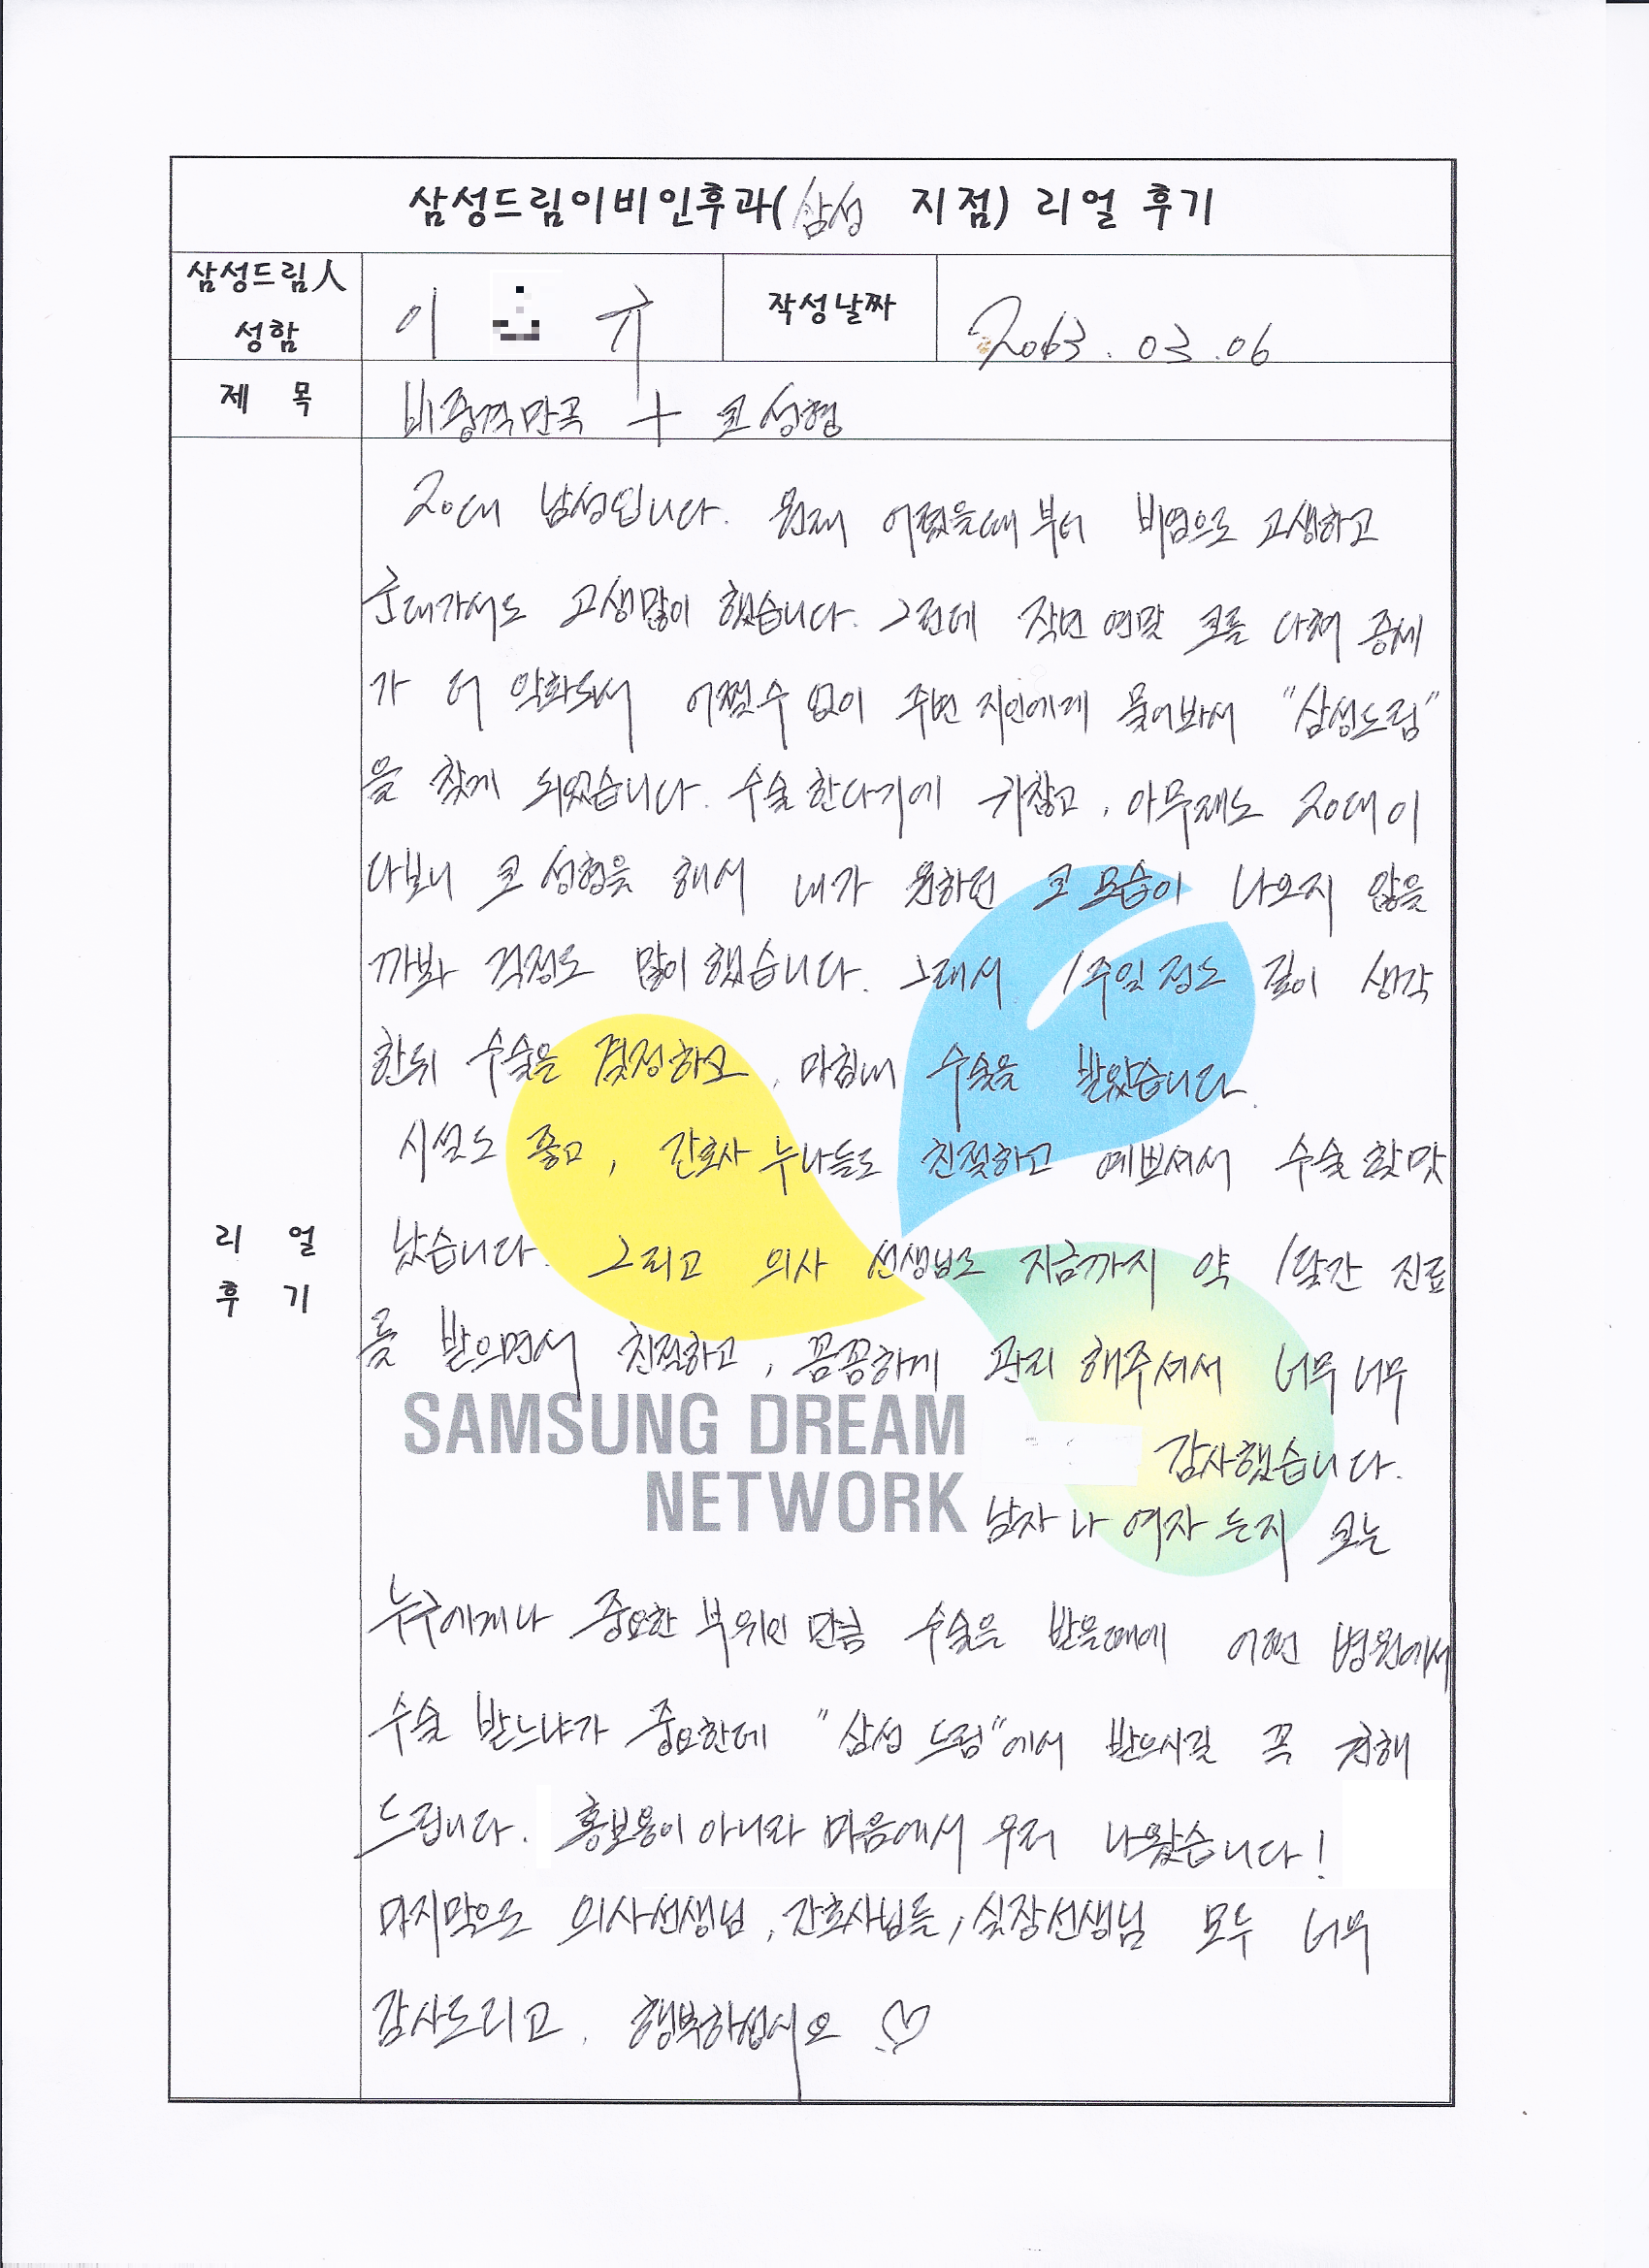 삼성드림이비인후과(삼성 지점) 리얼 후기
삼성드림人 성함
이 규
작성날짜
2013.03.06
제 목
비중격만곡 + 코성형
리 얼 후 기
20대 남성입니다. 원래 어렸을때부터 비염으로 고생하고
군대가서도 고생많이 했습니다. 그런데 작년 연말 코를 다쳐 증세
가 더 악화되서 어쩔수 없이 주변 지인에게 물어봐서 "삼성드림"
을 찾게 되었습니다. 수술한다기에 귀찮고, 아무래도 20대이
다보니 코 성형을 해서 내가 원하던 코 모습이 나오지 않을
까봐 걱정도 많이 했습니다. 그래서 1주일정도 깊이 생각
한뒤 수술을 결정하고, 마침내 수술을 받았습니다.
시설도 좋고, 간호사 누나들도 친절하고 예쁘셔서 수술할맛
났습니다. 그리고 의사 선생님도 지금까지 약 1달간 진료
를 받으면서 친절하고, 꼼꼼하게 관리 해주셔서 너무너무
감사했습니다.
남자나 여자든지 코는
누구에게나 중요한 부위인 만큼 수술을 받을때에 어떤 병원에서
수술 받느냐가 중요한데 "삼성 드림"에서 받으시길 꼭 권해
드립니다. 홍보용이 아니라 마음에서 우러 나왔습니다!
마지막으로 의사선생님, 간호사님들, 실장선생님 모두 너무
감사드리고, 행복하십시요 ♡
SAMSUNG DREAM
NETWORK